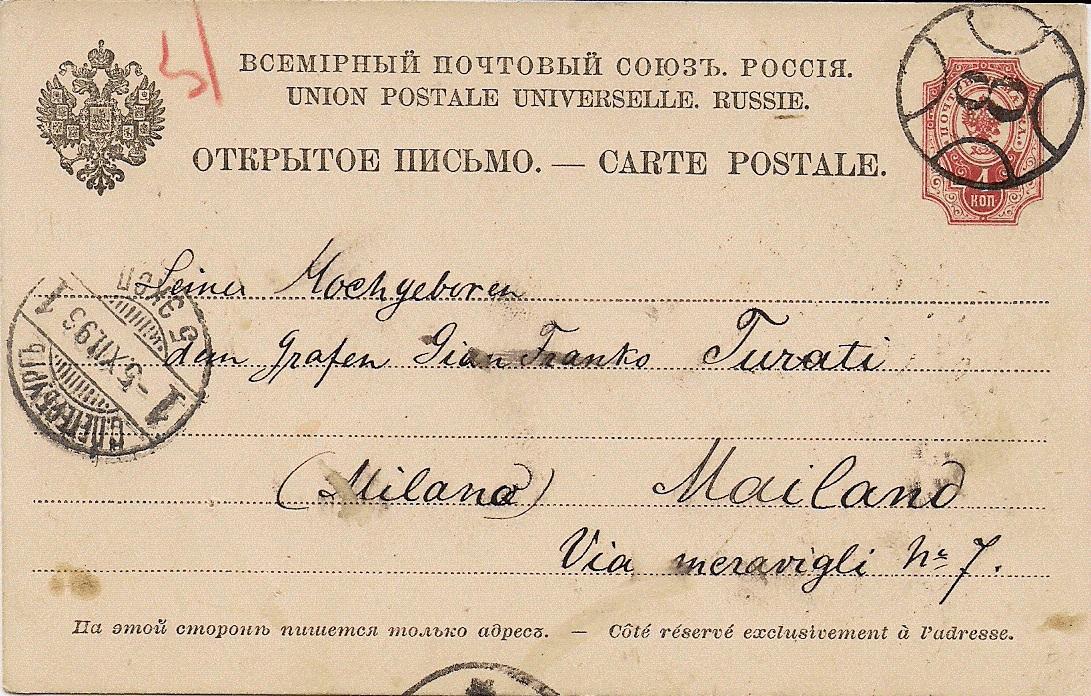 5/
ВСЕМІРНЫЙ ПОЧТОВЫЙ СОЮЗЪ. РОССІЯ.
UNION POSTALE UNIVERSELLE. RUSSIE.
ОТКРЫТОЕ ПИСЬМО. — CARTE POSTALE.
3
4
КОП
Seiner Hochgeboren
dem Grafen Gian Franko Turati
(Milano) Mailand
Via meravigli Nr 7.
С.ПЕТЕРБУРГЪ
1 -5.XII.93 1
5 ЭКСП
На этой сторонѣ пишется только адресъ. — Côté réservé exclusivement à l'adresse.